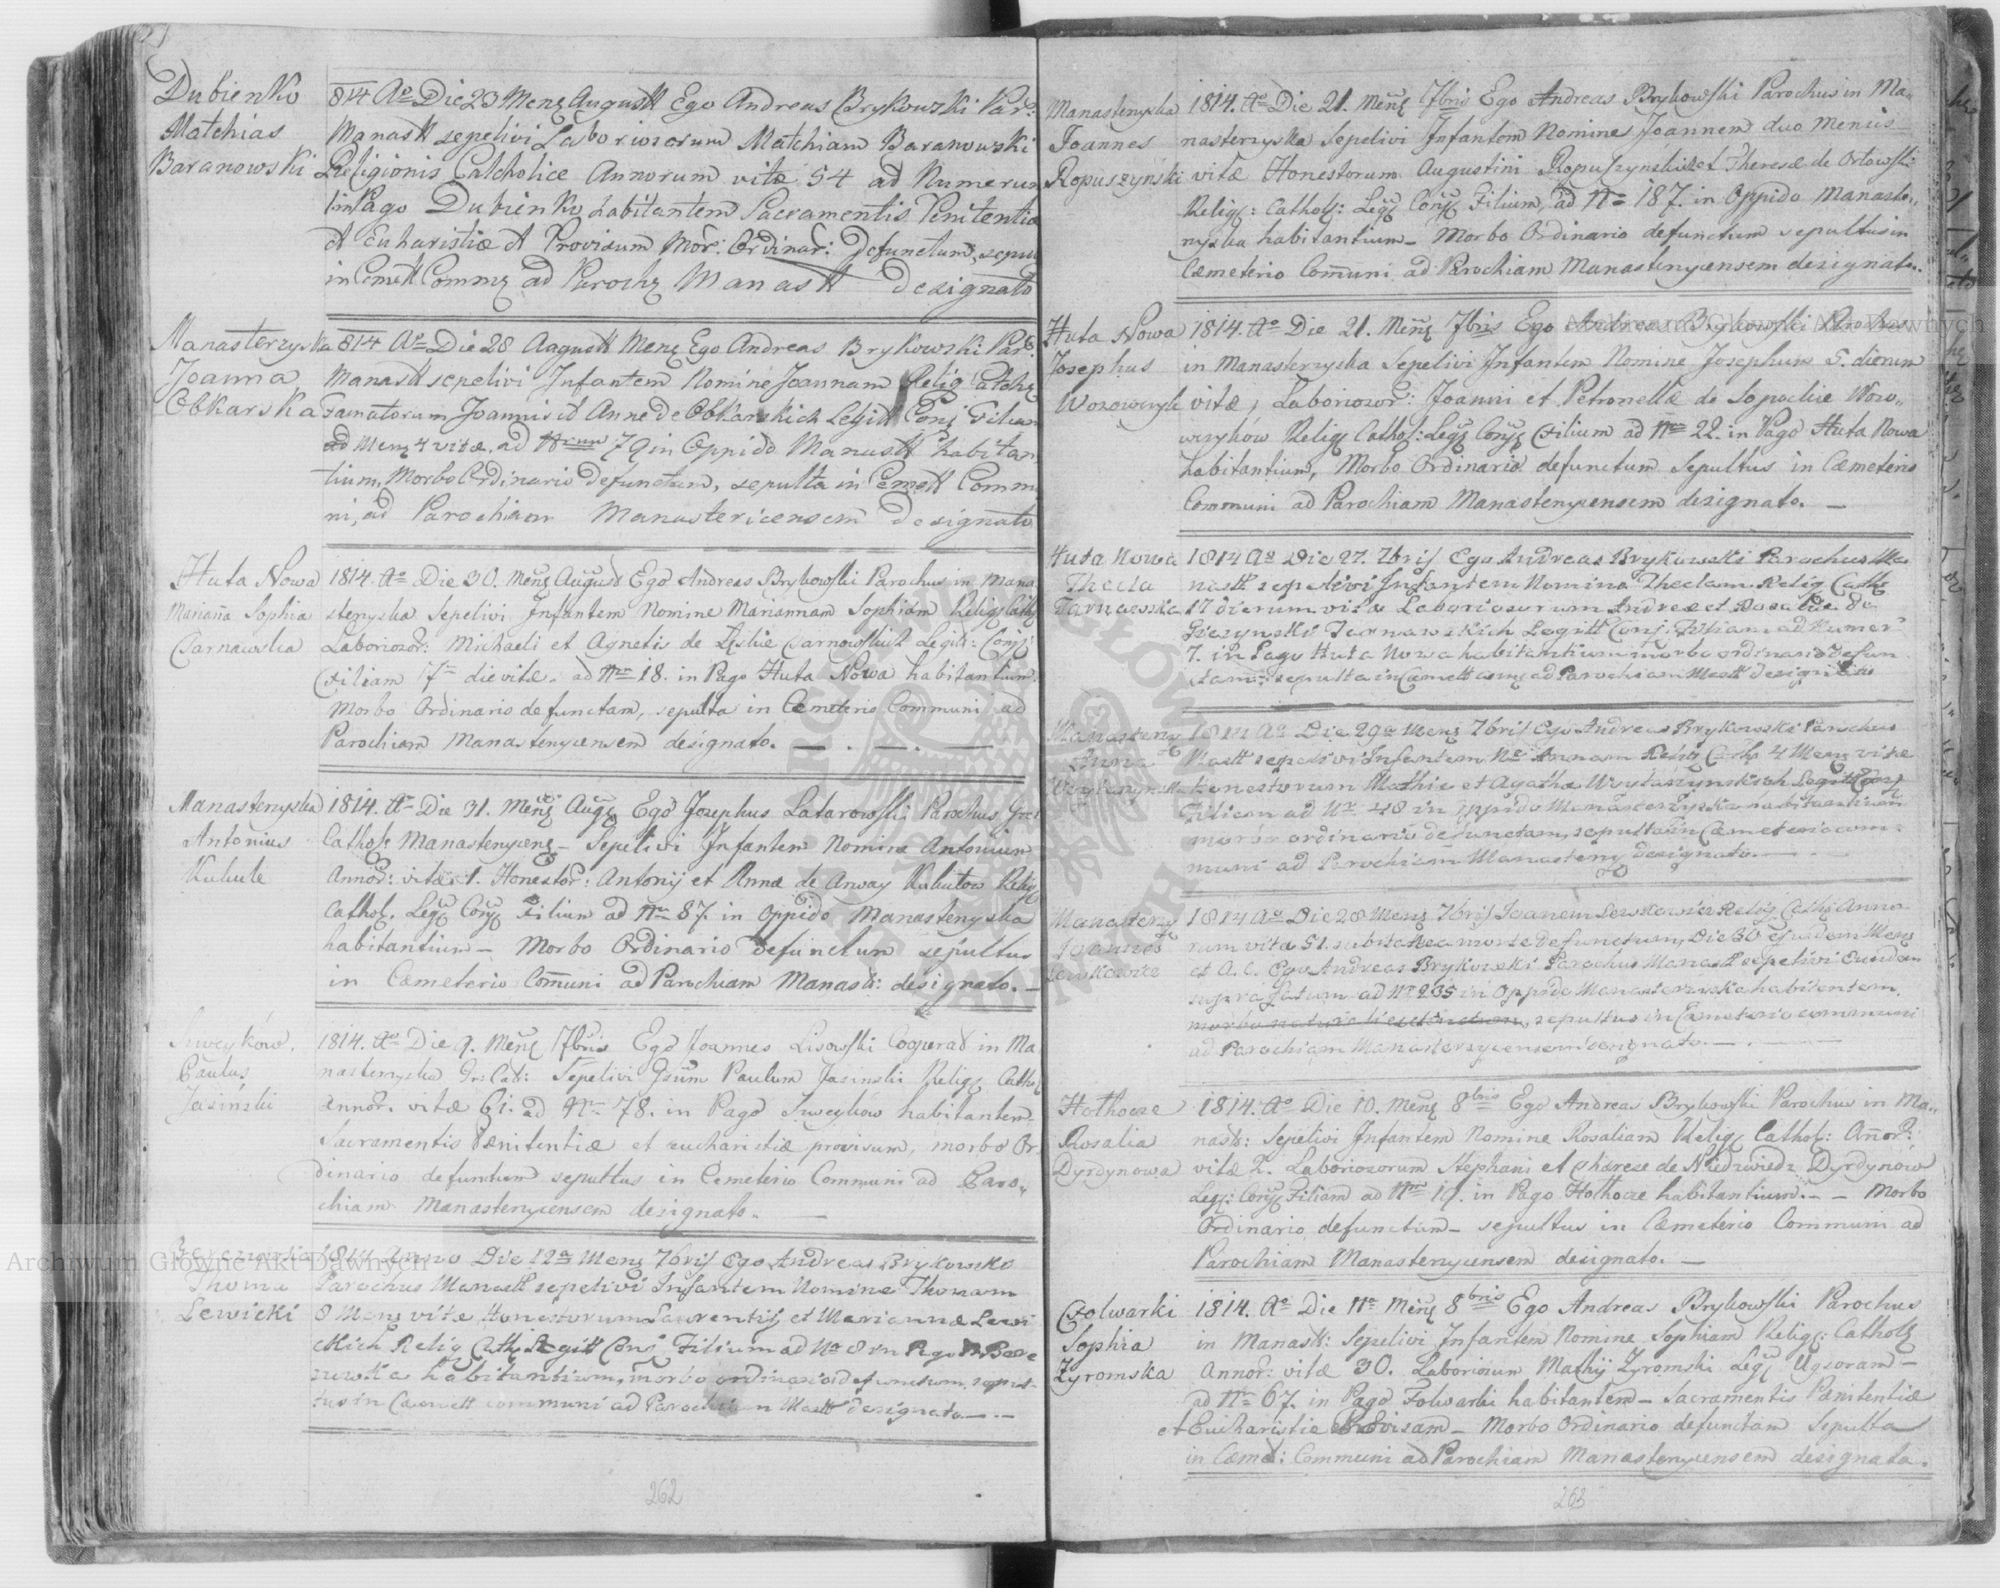 Dubienko
Matthias
Baranowski
814 Ao Die 23 Mens Augustt Ego Andreas Brykowski Par:
Manastt sepelivi Laboriosorum Matthiam Baranowski
Religionis Catcholice Annorum vitæ 54 ad Numerum
in Pago Dubienko habitantem Sacramentis Penitentiæ
et Eucharistiæ et Provisum Mor: Ordinar: Defunctum, sepul
in Cemett Comm ad Paroch Manastt designato
Manasterzyska
Joanna
Obkarska
814 Ao Die 28 Augustt Mens Ego Andreas Brykowski Par:
Manastt sepelivi Infantem Nomine Joannam Relig Catch
Famatorum Joannis et Anne de Obkarskich Legitt Conj Filiam
ad Mens 4 vitæ ad Nrum 79 in Oppido Manastt habitan
tium, Morbo Ordinario defunctam, sepulta in Cemett Comm
ni, ad Parochiam Manastericensem designato
Huta Nowa
Mariaña Sophia
Czarnawska
1814. Ao Die 30. Meñs August Ego Andreas Brykowski Parochus in Mana
sterzyska Sepelivi Infantem Nomine Mariannam Sophiam Relig Cath
Laborior: Michaeli et Agnetis de Czarnowskich Legitt: Conj:
Filiam 7 die vitæ. ad Nro 18. in Pago Huta Nowa habitantium
Morbo Ordinario defunctam, sepulta in Cemeterio Communi ad
Parochiam Manasterycensem designato.
Manasterzyska
Antonius
Kukule
1814. Ao Die 31. Meñs Aug Ego Josephus Parochus Gre
Cathol: Manasterycens – Sepelivi Infantem Nomine Antonium
Annor: vitæ 1. Honestor: Antonij et Annæ de Kukulow Relig
Cathol. Leg: Conj Filium ad Nro 87. in Oppido Manasterzyska
habitantium – Morbo Ordinario defunctum sepultus
in Cæmeterio Com̃uni ad Parochiam Manast: designato. –
Paulus
Jasinski
1814. Ao Die 9. Meñs 7bris Ego Joannes Lisowski Cooperat in Ma
nasterzyska Gr: Cat: Sepelivi Paulum Jasinski Relig Cathol
Annor. vitæ 61. ad Nro 78. in Pago habitantem
Sacramentis Pænitentiæ et eucharistiæ provisum, morbo Or.
dinario defunctum sepultus in Cemeterio Communi ad Paro„
chiam Manasterycensem designato.
Thoma
Lewicki
1814 Anno Die 12a Mens 7bris Ego Andreas Brykowski
Parochus Manastt sepelivi Infantem Nomine Thomam
8 Mens vitæ Honestorum Laurentij et Mariannæ Lewi
ckich Relig Cath Legitt Conj Filium ad No 8 in Pago Bere
zuwka habitantium, morbo ordinario defunctum, sepul-
tus in Cæmett communi ad Parochiam Mastt designato
262
Manasterzyska
Joannes
Ropuszynski
1814. Ao Die 21. Meñs 7bris Ego Andreas Brykowski Parochus in Ma„
nasterzyska Sepelivi Infantem Nomine Joannem duo Mensis
vitæ Honestorum Augustini Ropuszynski et Theresæ de Orłowski
Relig: Cathol: Leg: Conj Filium, ad Nro 187. in Oppido Manaste„
ryska habitantium – Morbo Ordinario defunctum sepultus in
Cæmeterio Com̃uni ad Parochiam Manasterycensem designato.
Huta Nowa
Josephus
1814. Ao Die 21. Meñs 7bris Ego Andreas Brykowski Parochus
in Manasterzyska Sepelivi Infantem Nomine Josephum 5. dierum
vitæ, Laborior: Joanni et Petronellæ de Woro„
Relig: Cathol: Leg: Conj: Filium ad Nro 22. in Pago Huta Nowa
habitantium, Morbo Ordinario defunctum Sepultus in Cæmeterio
Communi ad Parochiam Manasterycensem designato. –
Huta Nowa
Thecla
Tarnawska
1814 Ao Die 27. 7bris Ego Andreas Brykowski Parochus Ma
nastt sepelivi Infantem Nomine Theclam Relig Cath
17 dierum vitæ Laboriosorum Andreæ et Rosaliæ de
Tarnawskich Legitt Conj. Filiam ad Numer
7. in Pago Huta Nowa habitantium morbo ordinario defun
ctam: sepulta in Cæmett comm ad Parochiam Mastt designato
Manasterz
Anna
1814 Ao Die 29a Mens 7bris Ego Andreas Brykowski Parochus
Mastt sepelivi Infantem Ne Annam Relig Cath 4 Mens vitæ
Honestorum Mathie et Agathæ Legitt Conj
Filiam ad Nr 48 in Oppido Manasterzyska habitantium
morbo ordinario defunctam, sepulta in Cæmeterio com-
muni ad Parochiam Manasterz designato
Manasterz
Joannes
Lewkowicz
1814 Ao Die 28 Mens 7bris Joanem Lewkowicz Relig Cath Anno
rum vitæ 51. subitanea morte defunctum, Die 30 ejusdem Mens
et A. C. Ego Andreas Brykowski Parochus Manastt sepelivi Eundem
supra fatum ad Nr 265 in Oppido Manasterzyska habitentem.
sepultus in Cæmeterio communi
ad Parochiam Manasterzycensem designato
Hothocze
Rosalia
Dyrdynowa
1814. Ao Die 10. Meñs 8bris Ego Andreas Brykowski Parochus in Ma„
nast: Sepelivi Infantem Nomine Rosaliam Relig Cathol: Añor:
vitæ 2. Laboriosorum Stephani et Pharese de Niedzwiedz Dyrdynów
Leg: Conj: Filiam ad Nro 19. in Pago Hothocze habitantium. – Morbo
Ordinario defunctum – sepultus in Cæmeterio Communi ad
Parochiam Manasterycensem designato. –
Folwarki
Sophia
Zyromska
1814. Ao Die 11a Meñs 8bris Ego Andreas Brykowski Parochus
in Manast: Sepelivi Infantem Nomine Sophiam Relig: Cathol
Annor: vitæ 30. Laboriosum Mathij Zyromski Leg: Uxoram –
ad Nro 67. in Pago Folwarki habitantem – Sacramentis Pænitentiæ
et Eucharistiæ Provisam – Morbo Ordinario defunctam Sepulta
in Cæmet: Communi ad Parochiam Manasterycensem designata.
263
Archiwum Główne Akt Dawnych
Archiwum Główne Akt Dawnych